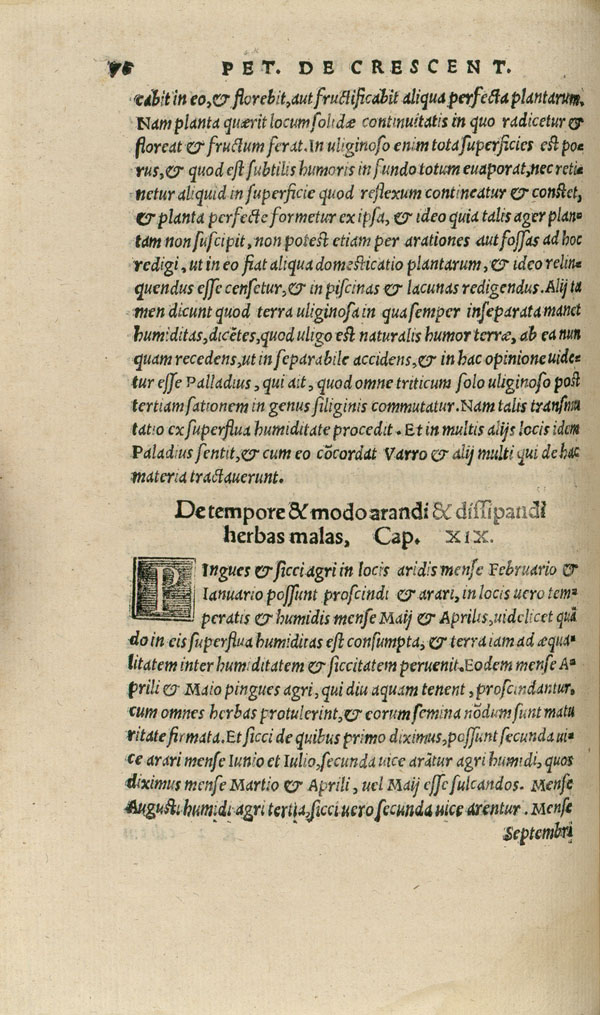 76 PET. DE CRESCENT.
cabit in eo, & florebit, aut fructificabit aliqua perfecta plantarum.
Nam planta quærit locum solidæ continuitatis in quo radicetur &
floreat & fructum ferat. In uliginoso enim tota superficies est po-
rus, & quod est subtilis humoris in fundo totum euaporat, nec reti-
netur aliquid in superficie quod reflexum contineatur & constet,
& planta perfecte formetur ex ipsa, & ideo quia talis ager plan-
tam non suscipit, non potest etiam per arationes aut fossas ad hoc
redigi, ut in eo fiat aliqua domesticatio plantarum, & ideo relin-
quendus esse censetur, & in piscinas & lacunas redigendus. Alij ta
men dicunt quod terra uliginosa in qua semper inseparata manet
humiditas, dicẽtes, quod uligo est naturalis humor terræ, ab ea nun
quam recedens, ut inseparabile accidens, & in hac opinione uide-
tur esse Palladius, qui ait, quod omne triticum solo uliginoso post
tertiam sationem in genus siliginis commutatur. Nam talis transmu
tatio ex superflua humiditate procedit. Et in multis alijs locis idem
Paladius sentit, & cum eo cõcordat Varro & alij multi qui de hac
materia tractauerunt.
De tempore & modo arandi & dissipandi
herbas malas, Cap. XIX.
PIngues & sicci agri in locis aridis mense Februario &
Ianuario possunt proscindi & arari, in locis uero tem-
peratis & humidis mense Maij & Aprilis, uidelicet quã
do in eis superflua humiditas est consumpta, & terra iam ad æqua-
litatem inter humiditatem & siccitatem peruenit. Eodem mense A-
prili & Maio pingues agri, qui diu aquam tenent, proscindantur,
cum omnes herbas protulerint, & eorum semina nõdum sunt matu
ritate firmata. Et sicci de quibus primo diximus, possunt secunda ui-
ce arari mense Iunio et Iulio, secunda uice arãtur agri humidi, quos
diximus mense Martio & Aprili, uel Maij esse sulcandos. Mense
Augusti humidi agri tertia, sicci uero secunda uice arentur. Mense
Septembri